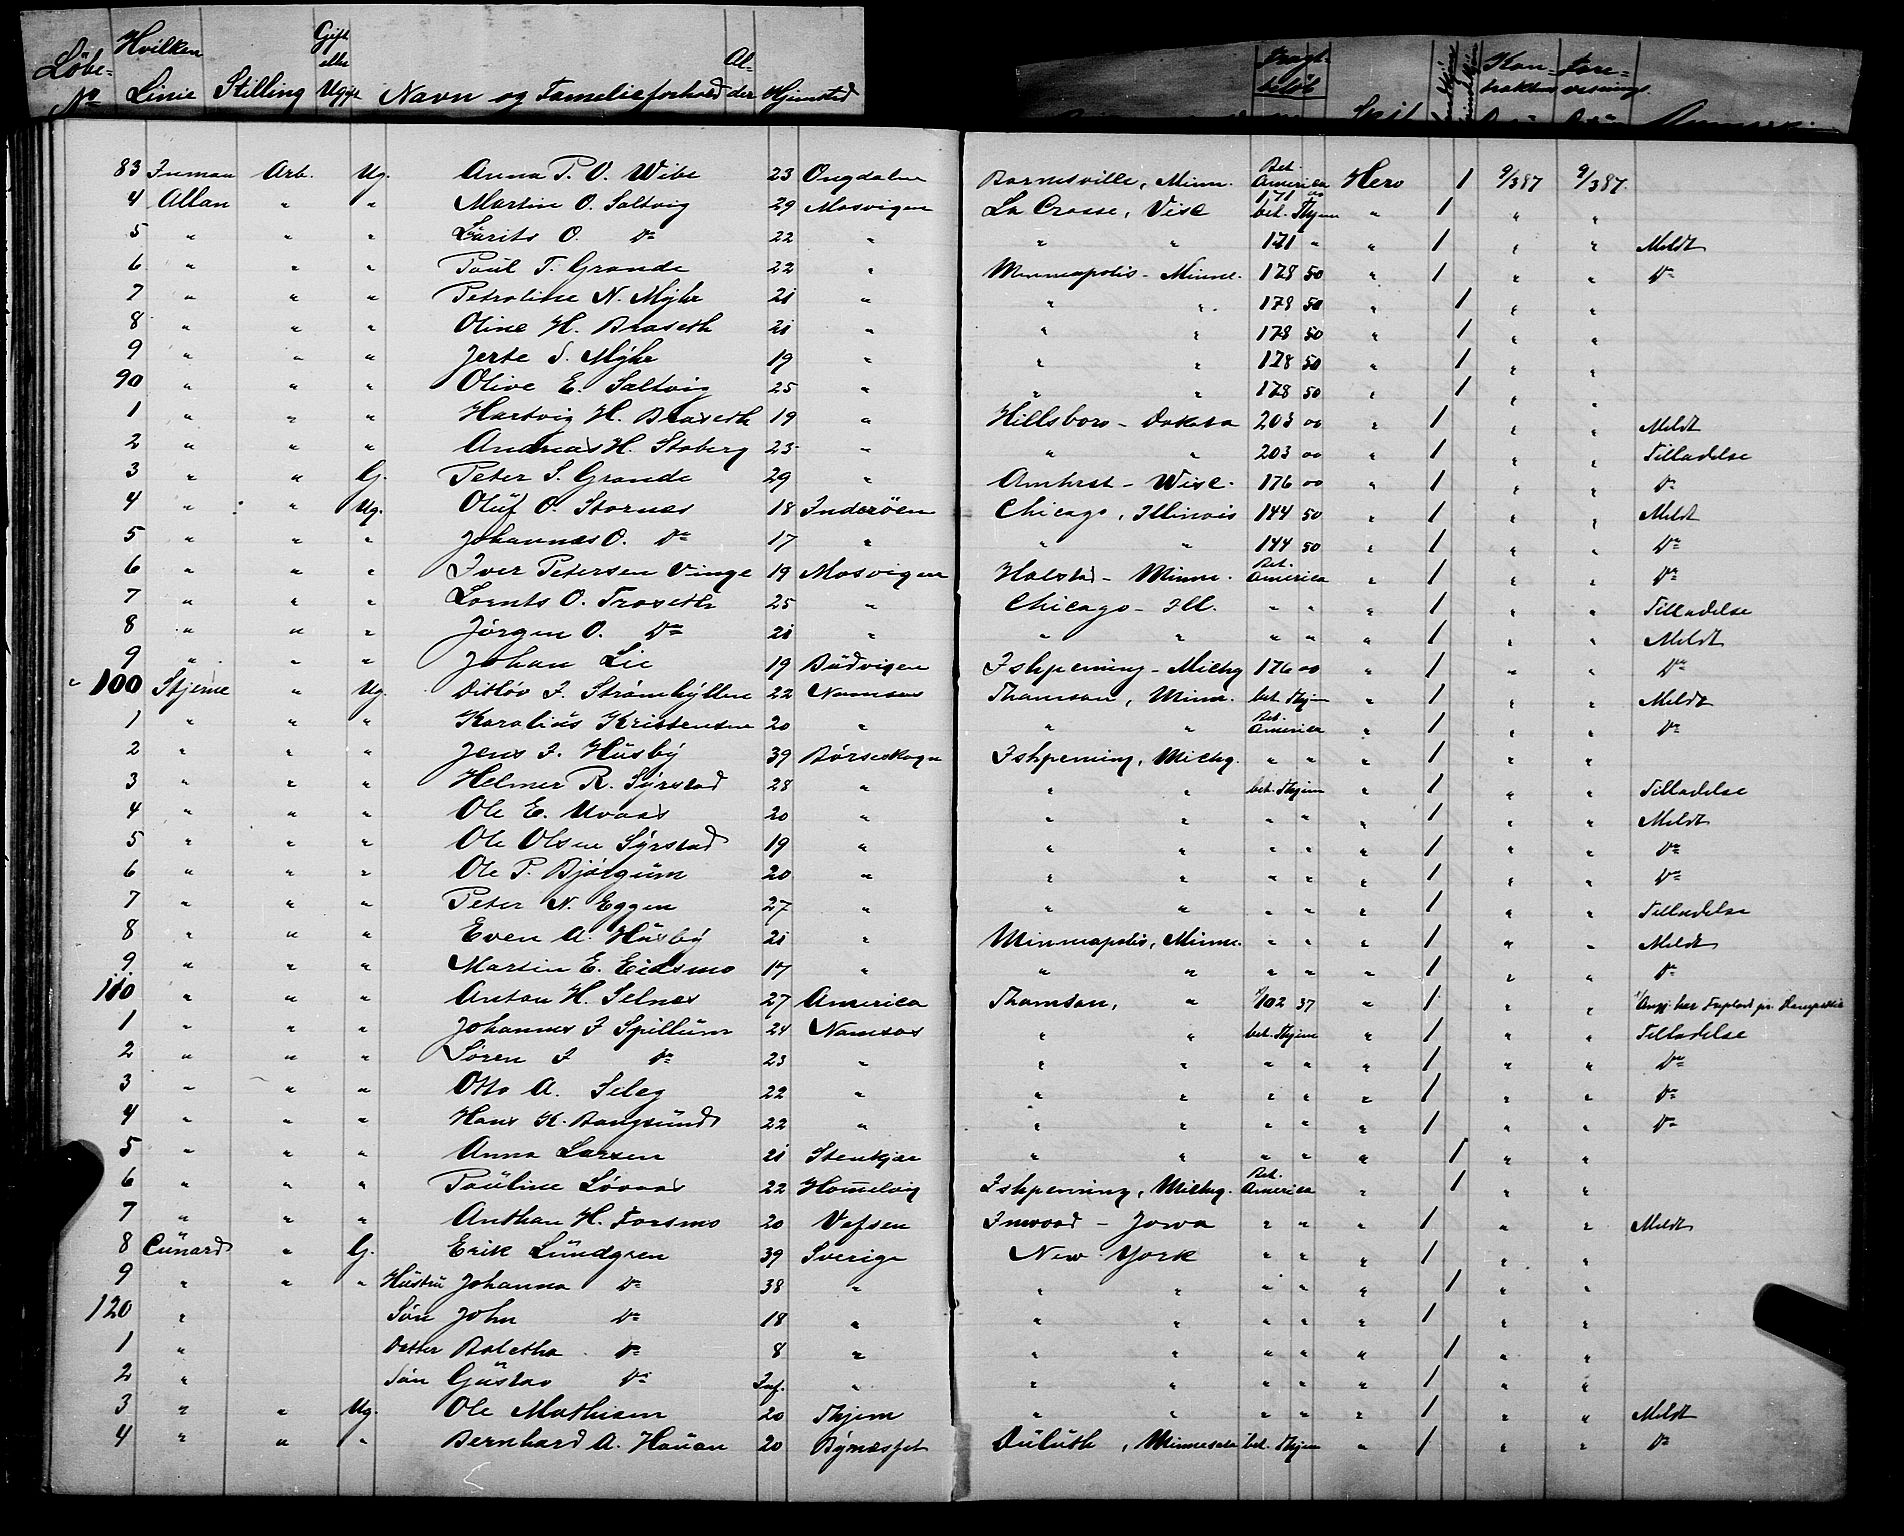 Löbe- No Hvilken Linie Stilling Gift eller Ugift Navn og Familieforhold Alder Hjemsted
83 Inman Arb. Ug. Anna P. O. Wibe 23 Opdalen Barnesville, Minn. Bet. America Hero 1 9/3 87 9/3 87
4 Allan " " Martin O. Saltvig 29 Mosvigen La Crosse, Visc 171 00 bet. Thjem " 1 " "
5 " " " Lärits O. Do 22 " " " 171 " " 1 " " Meldt
6 " " " Paul T. Grande 22 " Minneapolis - Minne. 178 50 " 1 " " Do
7 " " " Petroline N. Myhr 21 " " " 178 50 " 1 " "
8 " " " Oline H. Braseth 21 " " " 178 50 " 1 " "
9 " " " Jerte S. Myhr 19 " " " 178 50 " 1 " "
90 " " " Olive E. Saltvig 25 " " " 178 50 " 1 " "
1 " " " Hartvig H. Braseth 19 " Hillsboro - Dakota 203 00 " 1 " " Meldt
2 " " " Andreas H. Stoberg 25 " " " 203 00 " 1 " " Tilladelse
3 " " G. Peter S. Grande 29 " Amhrst - Wisc. 176 00 " 1 " " Do
4 " " Ug. Oluf O. Stornes 18 Inderöen Chicago, Illinois 144 50 " 1 " " Meldt
5 " " " Johannes O. Do 17 " " " 144 50 " 1 " " Do
6 " " " Iver Petersen Vinge 19 Mosvigen Halstad - Minne. Bet. America " 1 " " Do
7 " " " Lornts O. Traseth 25 " Chicago - Ill. " " " 1 " " Tilladelse
8 " " " Jørgen O. Do 21 " " " " " " 1 " " Meldt
9 " " " Johan Lie 19 Büdvigen Ishpeming - Michg 176 00 " 1 " " Do
" 100 Stjerne " Ug. Ditløv J. Strömhyllen 22 Namsos Thamson, Minn. bet. Thjem " 1 " " Meldt
1 " " " Karolius Kristensen 20 " " " Bet. America " 1 " " Do
2 " " " Jens J. Husby 39 Börseskogn Ishpeming, Michg. " " " 1 " "
3 " " " Helmer R. Syrstad 28 " " " bet. Thjem " 1 " " Tilladelse
4 " " " Ole E. Uvaas 20 " " " " " " 1 " " Meldt
5 " " " Ole Olsen Syrstad 19 " " " " " " 1 " " Do
6 " " " Ole P. Bjørgum 20 " " " " " " 1 " " Do
7 " " " Peter N. Eggen 27 " " " " " " 1 " " Tilladelse
8 " " " Even A. Husby 21 " Minneapolis, Minne. " " " 1 " " Meldt
9 " " " Martin E. Eidsmo 17 " " " " " " 1 " " Do
110 " " " Anton H. Selnes 27 America Thamson, " 102 37 " 1 " "
1 " " " Johannes J Spillum 24 Namsos " " bet. Thjem " 1 " " Tilladelse
2 " " " Sören J Do 23 " " " " " " 1 " " Do
3 " " " Otto A. Seleg 22 " " " " " " 1 " " Do
4 " " " Hans K. Bangsund 22 " " " " " " 1 " " Do
5 " " " Anna Larsen 21 Stenkjær " " " " " 1 " "
6 " " " Pauline Sövaas 22 Homelvig Ishpeming, Michg. Bet. America " 1 " "
7 " " " Anthon H. Forsmo 20 Vefsen Inwood - Jowa " " " 1 " " Meldt
8 Cunard " G. Erik Lundgren 39 Sverige New York " " " 1 " "
9 " " " Hustru Johanna Do 38 " " " " " " 1 " "
120 " Sön John Do 18 " " " " " " 1 " "
1 " Datter Baletha Do 8 " " " " " " 1 " "
2 " Sön Gustav Do Inf. " " " " " " 1 " "
3 " " Ug. Ole Mathisen 20 Thjem " " " " " 1 " " Meldt
4 " " " Bernhard A. Hauan 20 Bynæsset Duluth, Minnesota bet. Thjem " 1 " " Do